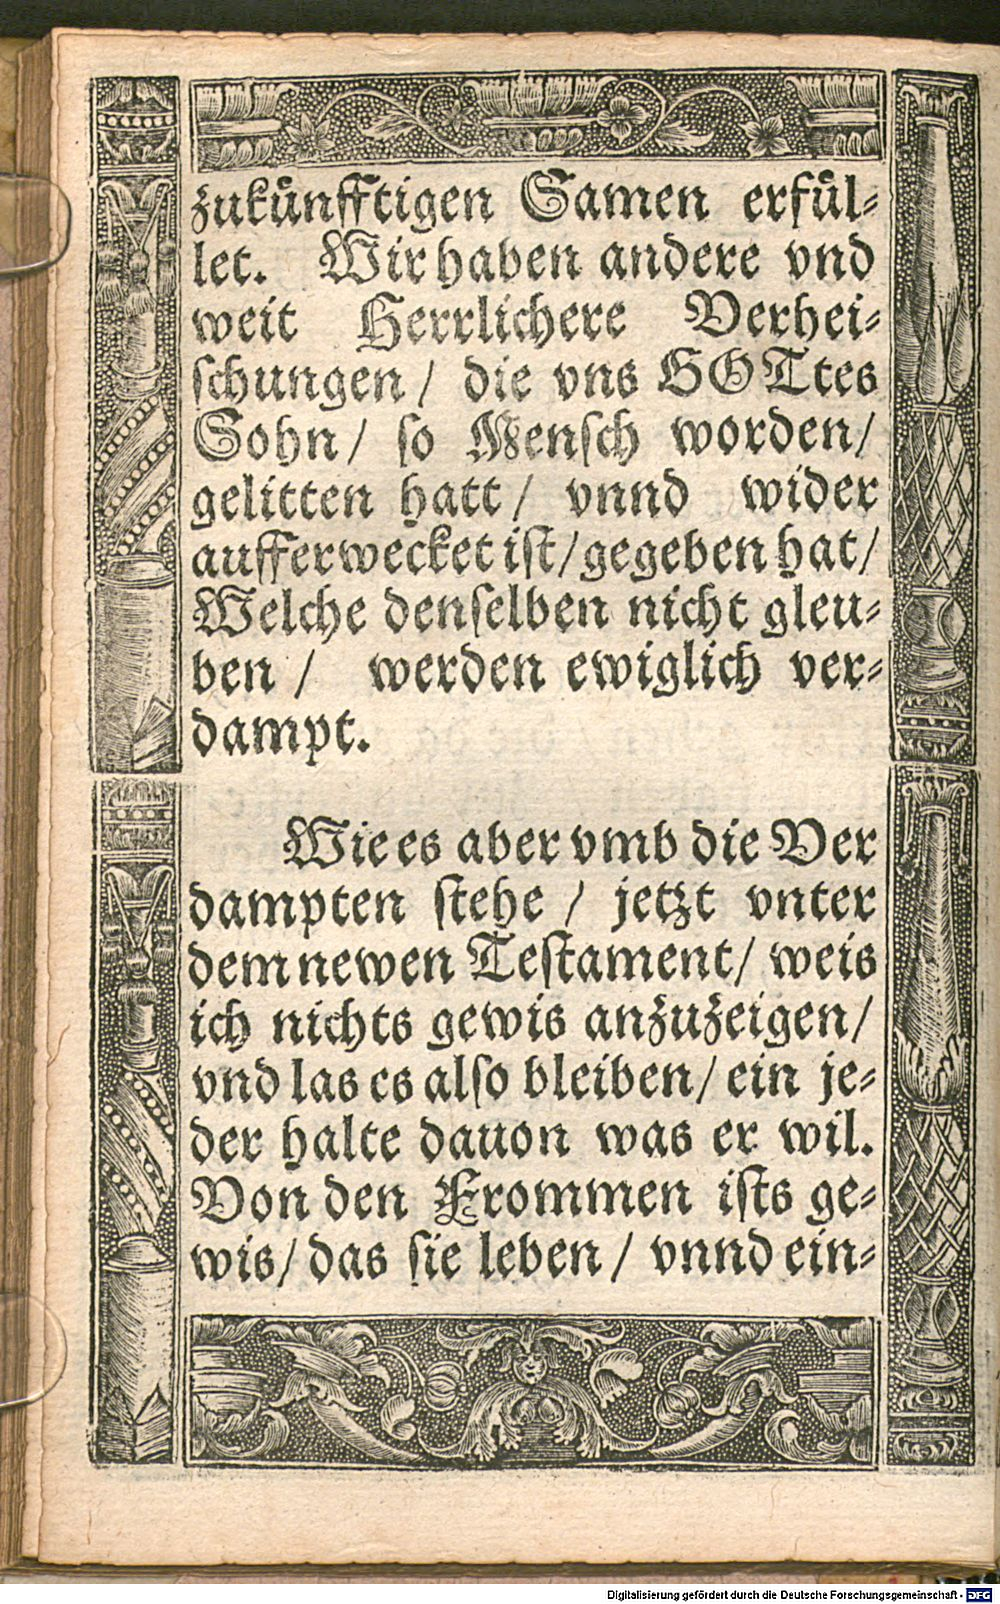 zukünfftigen Samen erfül-
let. Wir haben andere vnd
weit Herrlichere Verhei-
schungen / die vns GOTtes
Sohn / so Mensch worden /
gelitten hatt / vnnd wider
aufferwecket ist / gegeben hat /
Welche denselben nicht gleu-
ben / werden ewiglich ver-
dampt.
Wie es aber vmb die Ver
dampten stehe / jetzt vnter
dem newen Testament / weis
ich nichts gewis anzuzeigen /
vnd las es also bleiben / ein je-
der halte dauon was er wil.
Von den Frommen ists ge-
wis / das sie leben / vnnd ein-
Digitalisierung gefördert durch die Deutsche Forschungsgemeinschaft - DFG